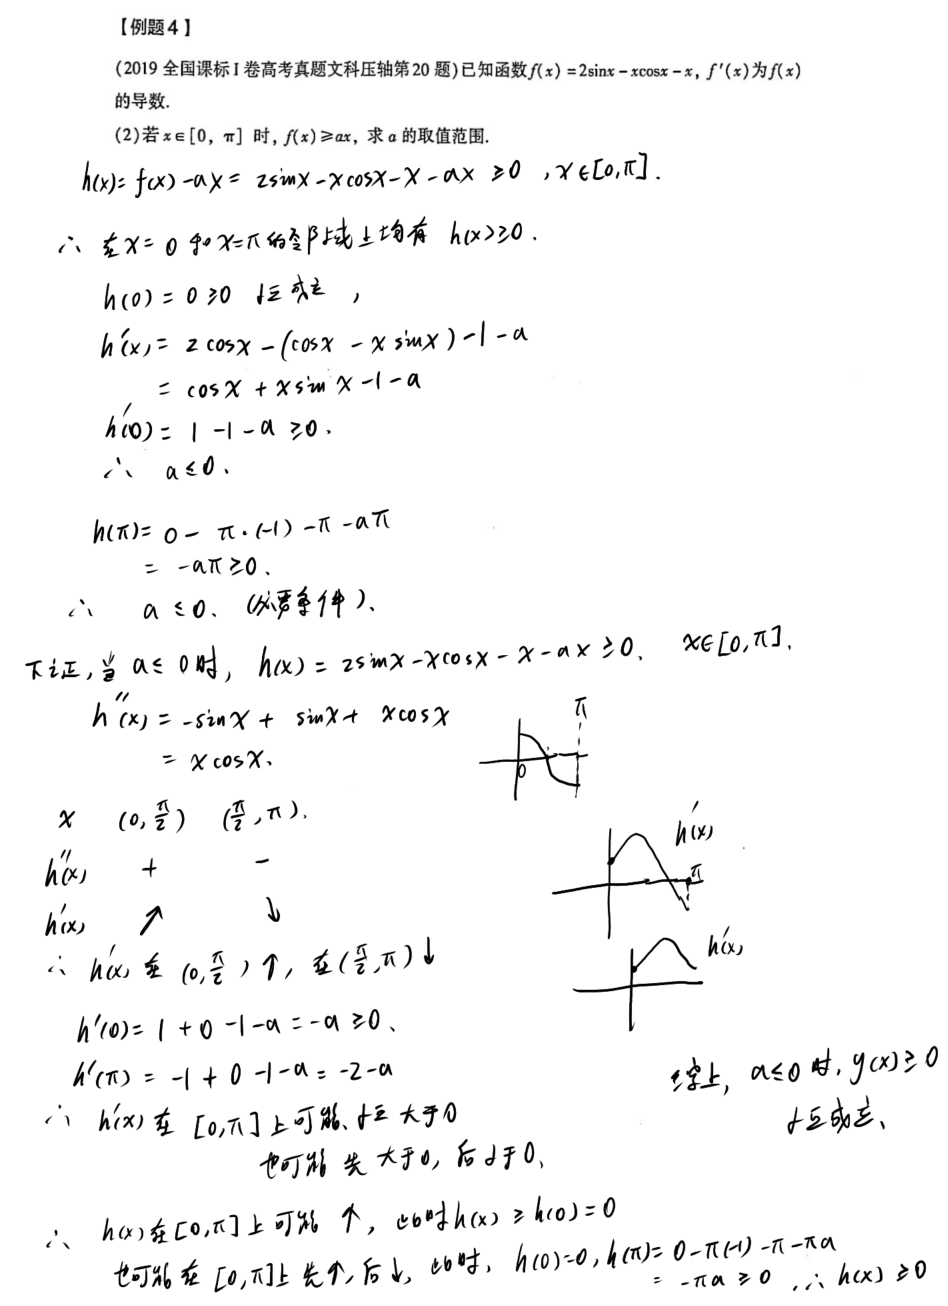 【例题4】
(2019 全国课标I卷高考真题文科压轴第20题)已知函数f(x)=2sinx-xcosx-x, f'(x)为f(x)
的导数.
(2)若x∈[0, π] 时, f(x)≥ax, 求a的取值范围.
h(x)= f(x)-ax = 2sinx-xcosx-x-ax ≥0 , x∈[0,π].
∴ 在x=0和x=π的邻域上均有 h(x)≥0.
h(0)=0≥0 恒成立,
h'(x)= 2cosx-(cosx - x sinx)-1-a
= cosx + xsinx-1-a
h'(0)= 1-1-a≥0.
∴ a≤0.
h(π)= 0- π·(-1)-π-aπ
= -aπ≥0.
∴ a≤0. (必要条件).
下证,当a≤0时, h(x)=2sinx-xcosx-x-ax≥0. x∈[0,π].
h''(x)= -sinx+ sinx+ xcosx
= xcosx.
π
0
x (0,π/2) (π/2,π).
h''(x) + -
h'(x) ↗ ↘
h'(x)
π
∴ h'(x)在(0,π/2)↑, 在(π/2,π)↓
h'(x)
h'(0)= 1+0-1-a=-a≥0.
h'(π)= -1+0-1-a=-2-a
∴ h'(x)在[0,π]上可能恒大于0
也可能先大于0,后小于0.
综上, a≤0时, g(x)≥0
恒成立.
∴ h(x)在[0,π]上可能↑, 此时h(x)≥h(0)=0
也可能在[0,π]上先↑,后↓,此时, h(0)=0, h(π)= 0-π(-1)-π-πa
= -πa≥0 , ∴ h(x)≥0